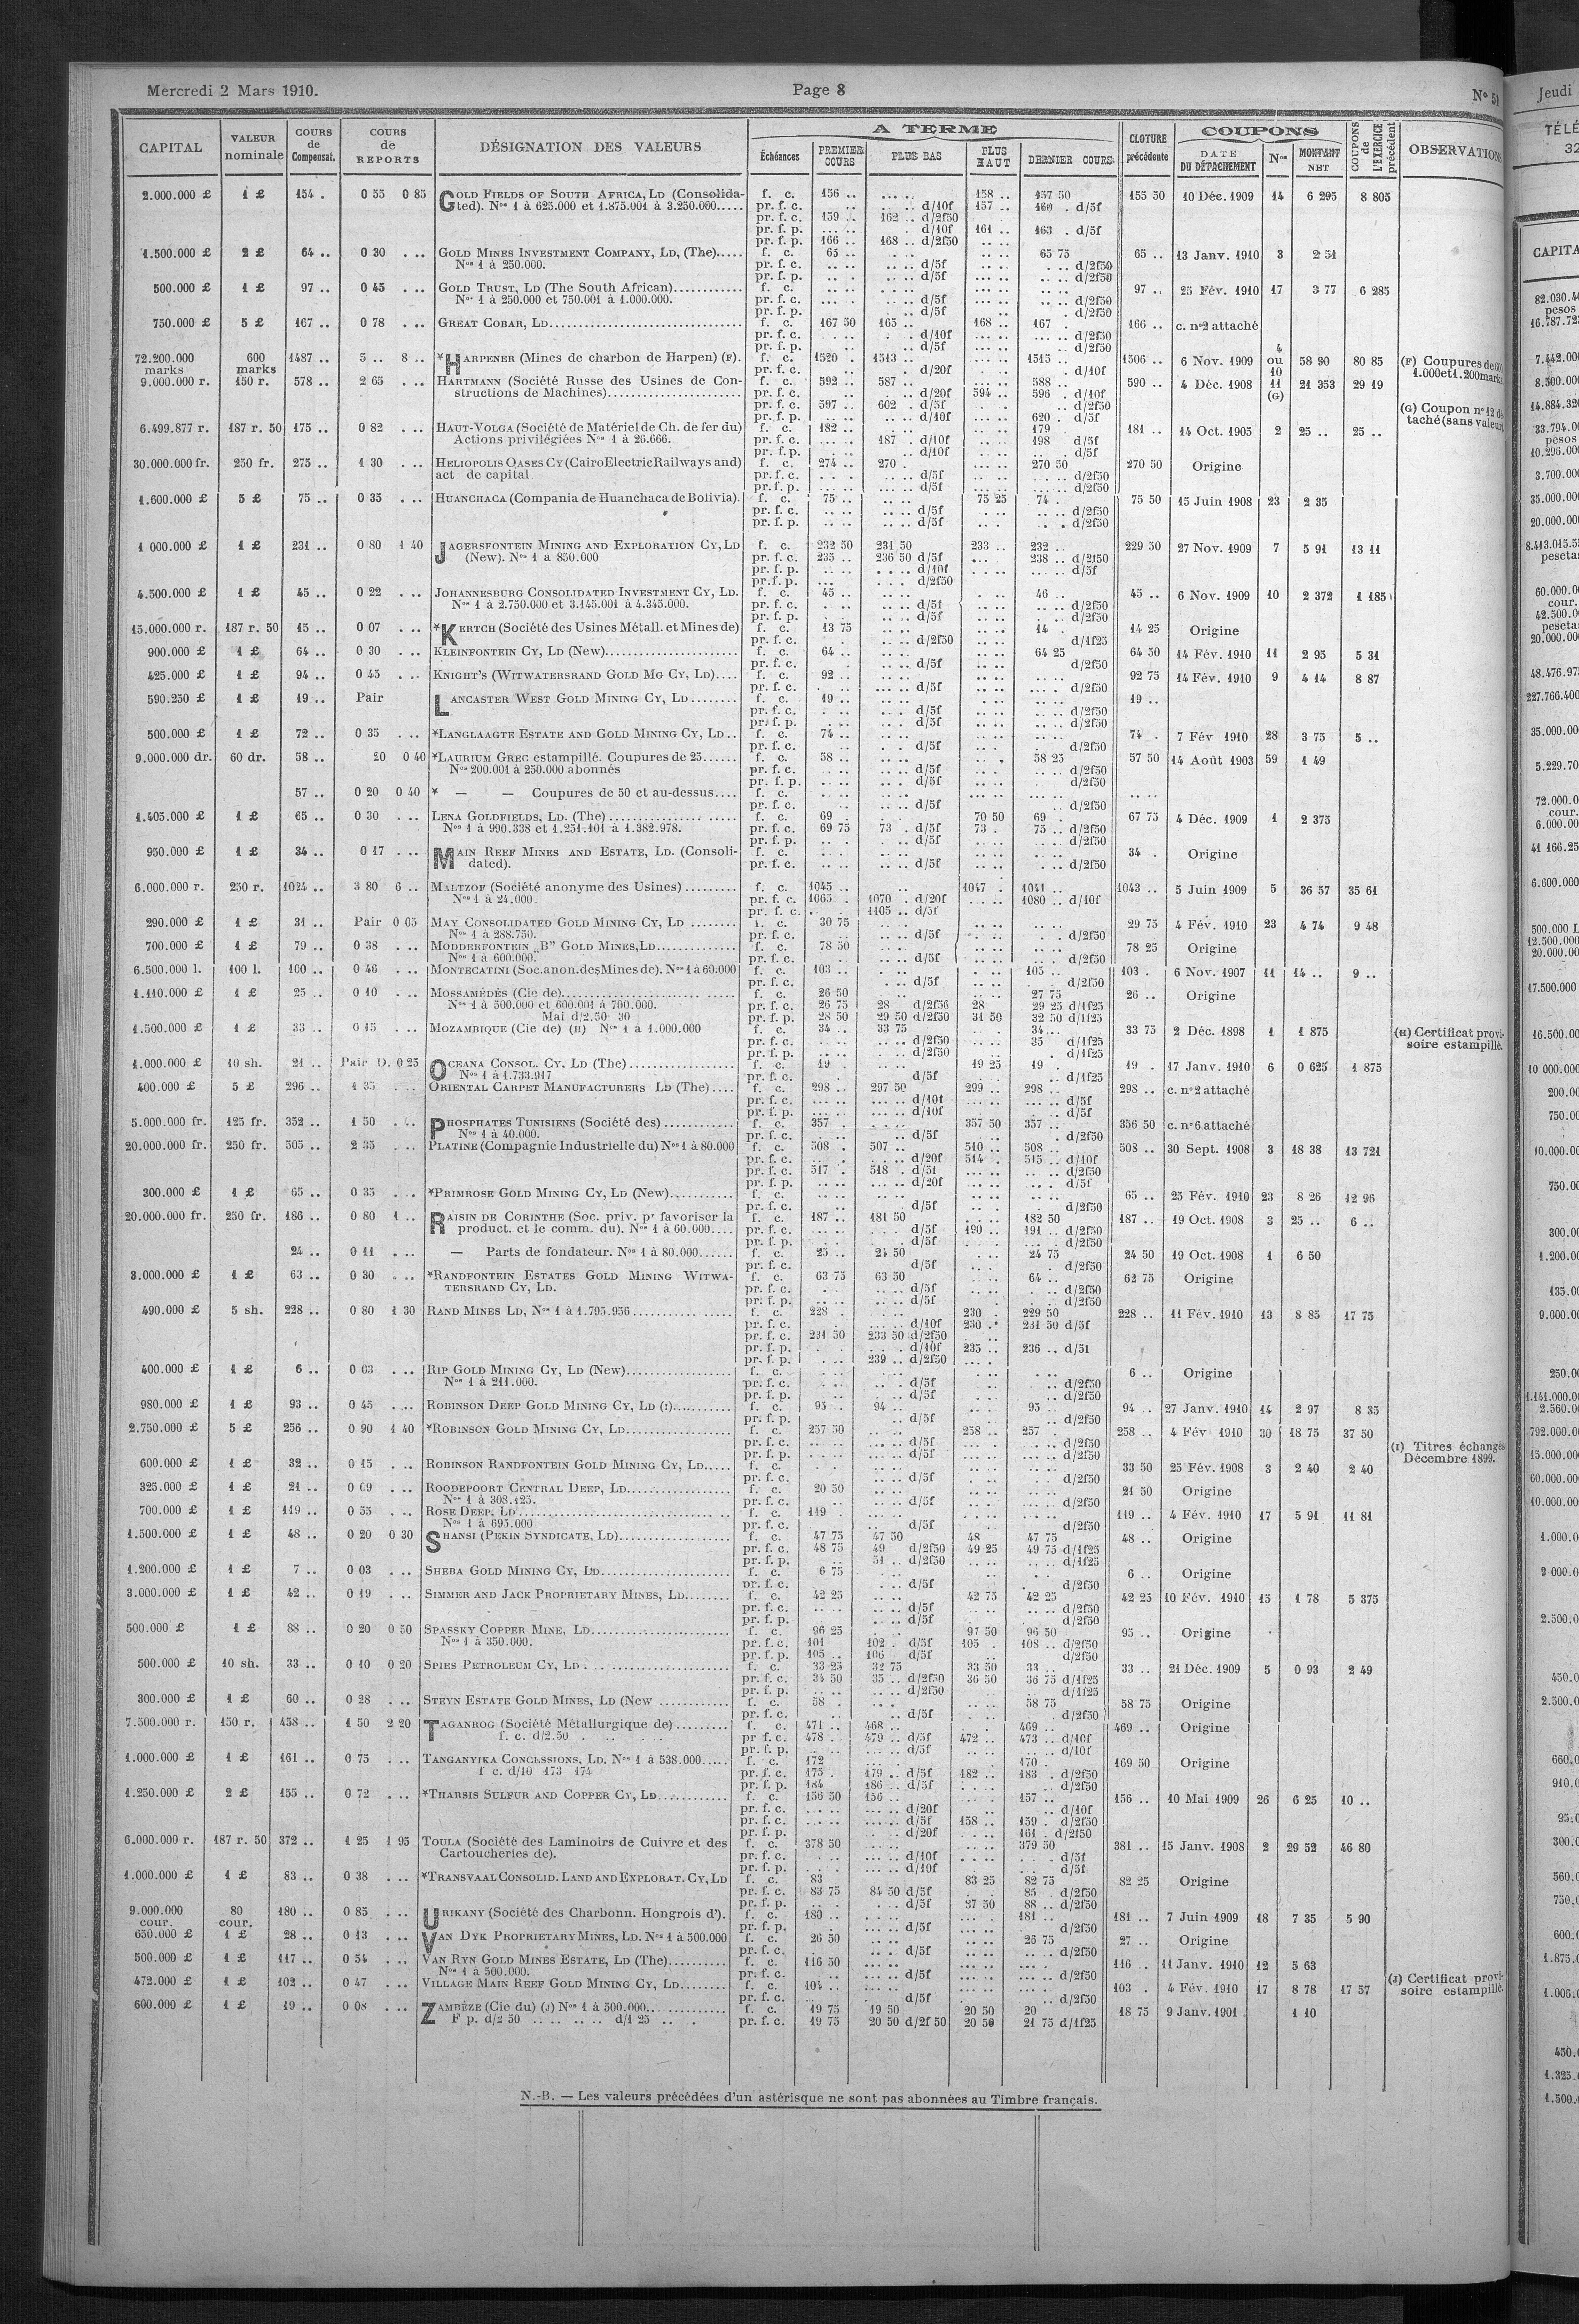 Mercredi 2 Mars 1910. Page 8 N° 51
CAPITAL VALEUR nominale COURS de Compensat. COURS de REPORTS DÉSIGNATION DES VALEURS A TERME Échéances PREMIER COURS PLUS BAS PLUS HAUT DERNIER COURS CLOTURE précédente COUPONS DATE DU DÉTACHEMENT Nos MONTANT NET COUPONS de L'EXERCICE précédent OBSERVATIONS
2.000.000 £ 1 £ 154 . 0 55 0 85 GOLD FIELDS OF SOUTH AFRICA, LD (Consolida- f. c. 156 .. 158 .. 157 50 155 50 10 Déc. 1909 14 6 295 8 805
ted). Nos 1 à 625.000 et 1.875.001 à 3.250.000..... pr. f. c. d/10f 157 .. 160 . d/5f
pr. f. c. 159 .. 162 .. d/2f50
pr. f. p. d/10f 161 .. 163 . d/5f
pr. f. p. 166 .. 168 .. d/2f50
1.500.000 £ 2 £ 64 .. 0 30 GOLD MINES INVESTMENT COMPANY, LD, (The)..... f. c. 65 .. 65 75 65 .. 13 Janv. 1910 3 2 51
Nos 1 à 250.000. pr. f. c. d/5f d/2f50
pr. f. p. d/5f d/2f50
500.000 £ 1 £ 97 .. 0 45 GOLD TRUST, LD (The South African)............ f. c. 97 .. 25 Fév. 1910 17 3 77 6 285
Nos 1 à 250.000 et 750.001 à 1.000.000. pr. f. c. d/5f d/2f50
pr. f. p. d/5f d/2f50
750.000 £ 5 £ 167 .. 0 78 GREAT COBAR, LD............ f. c. 167 50 165 .. 168 .. 167 . 166 .. c. n°2 attaché
pr. f. c. d/10f d/2f50
pr. f. p. d/5f d/2f50
72.200.000 marks 600 marks 1487 .. 5 .. 8 .. *HARPENER (Mines de charbon de Harpen) (F). f. c. 1520 . 1513 .. 1515 .. 1506 .. 6 Nov. 1909 4 ou 10 58 90 80 85 (F) Coupures de
pr. f. c. d/20f d/10f 1.000 et 1.200 marks
9.000.000 r. 150 r. 578 .. 2 65 HARTMANN (Société Russe des Usines de Con- f. c. 592 .. 587 .. 588 .. 590 .. 4 Déc. 1908 11 (G) 21 353 29 19
structions de Machines)............ pr. f. c. d/20f 594 .. 596 . d/10f
pr. f. c. 597 .. 602 . d/5f d/2f50 (G) Coupon n° 12 dé-
pr. f. p. d/10f 620 . d/5f taché (sans valeur)
6.499.877 r. 187 r. 50 175 .. 0 82 HAUT-VOLGA (Société de Matériel de Ch. de fer du) f. c. 182 .. 179 181 .. 14 Oct. 1905 2 25 .. 25 ..
Actions privilégiées Nos 1 à 26.666. pr. f. c. 187 . d/10f 198 d/5f
pr. f. p. d/10f d/5f
30.000.000 fr. 250 fr. 275 .. 1 30 HELIOPOLIS OASES CY (Cairo Electric Railways and) f. c. 274 .. 270 . 270 50 270 50 Origine
act de capital pr. f. c. d/5f d/2f50
pr. f. p. d/5f d/2f50
1.600.000 £ 5 £ 75 .. 0 35 HUANCHACA (Compania de Huanchaca de Bolivia). f. c. 75 .. 75 25 74 . 75 50 15 Juin 1908 23 2 35
pr. f. c. d/5f d/2f50
pr. f. p. d/5f d/2f50
1 000.000 £ 1 £ 231 .. 0 80 1 40 JAGERSFONTEIN MINING AND EXPLORATION CY, LD f. c. 232 50 231 50 233 .. 232 .. 229 50 27 Nov. 1909 7 5 91 13 11
(New). Nos 1 à 850.000 pr. f. c. 235 .. 236 50 d/5f 238 .. d/2f50
pr. f. p. d/10f d/5f
pr. f. p. d/2f50
4.500.000 £ 1 £ 45 .. 0 22 JOHANNESBURG CONSOLIDATED INVESTMENT CY, LD. f. c. 45 .. 46 .. 45 .. 6 Nov. 1909 10 2 372 1 185
Nos 1 à 2.750.000 et 3.145.001 à 4.345.000. pr. f. c. d/5f d/2f50
pr. f. p. d/5f d/2f50
15.000.000 r. 187 r. 50 15 .. 0 07 *KERTCH (Société des Usines Métall. et Mines de) f. c. 13 75 14 . 14 25 Origine
pr. f. c. d/2f50 d/1f25
900.000 £ 1 £ 64 .. 0 30 KLEINFONTEIN CY, LD (New)............ f. c. 64 .. 64 25 64 50 14 Fév. 1910 11 2 95 5 31
pr. f. c. d/5f d/2f50
425.000 £ 1 £ 94 .. 0 45 KNIGHT'S (WITWATERSRAND GOLD MG CY, LD).... f. c. 92 .. 92 75 14 Fév. 1910 9 4 14 8 87
pr. f. c. d/5f d/2f50
590.250 £ 1 £ 19 .. Pair LANCASTER WEST GOLD MINING CY, LD........ f. c. 19 .. 19 ..
pr. f. c. d/5f d/2f50
pr. f. p. d/5f d/2f50
500.000 £ 1 £ 72 .. 0 35 *LANGLAAGTE ESTATE AND GOLD MINING CY, LD.. f. c. 74 .. 74 . 7 Fév 1910 28 3 75 5 ..
pr. f. c. d/5f d/2f50
9.000.000 dr. 60 dr. 58 .. 20 0 40 *LAURIUM GREC estampillé. Coupures de 25...... f. c. 58 .. 58 25 57 50 14 Août 1903 59 1 49
Nos 200.001 à 250.000 abonnés pr. f. c. d/5f d/2f50
pr. f. p. d/5f d/2f50
57 .. 0 20 0 40 * — — Coupures de 50 et au-dessus.... f. c.
pr. f. c. d/5f d/2f50
1.405.000 £ 1 £ 65 .. 0 30 LENA GOLDFIELDS, LD. (The)............ f. c. 69 . 70 50 69 . 67 75 4 Déc. 1909 1 2 375
Nos 1 à 990.338 et 1.251.101 à 1.382.978. pr. f. c. 69 75 73 . d/5f 73 . 75 .. d/2f50
pr. f. p. d/5f d/2f50
950.000 £ 1 £ 34 .. 0 17 MAIN REEF MINES AND ESTATE, LD. (Consoli- f. c. 34 . Origine
dated). pr. f. c. d/5f d/2f50
6.000.000 r. 250 r. 1024 .. 3 80 6 .. MALTZOF (Société anonyme des Usines)......... f. c. 1045 .. 1047 . 1041 .. 1043 .. 5 Juin 1909 5 36 57 35 61
Nos 1 à 24.000. pr. f. c. 1065 . 1070 . d/20f 1080 .. d/10f
pr. f. c. 1105 .. d/5f
290.000 £ 1 £ 31 .. Pair 0 05 MAY CONSOLIDATED GOLD MINING CY, LD ........ f. c. 30 75 29 75 4 Fév. 1910 23 4 74 9 48
Nos 1 à 288.750. pr. f. c. d/5f d/2f50
700.000 £ 1 £ 79 .. 0 38 MODDERFONTEIN „B” GOLD MINES, LD............ f. c. 78 50 78 25 Origine
Nos 1 à 600.000. pr. f. c. d/5f d/2f50
6.500.000 l. 100 l. 100 .. 0 46 MONTECATINI (Soc. anon. des Mines de). Nos 1 à 60.000 f. c. 103 .. 105 .. 103 . 6 Nov. 1907 11 14 .. 9 ..
pr. f. c. d/5f d/2f50
1.110.000 £ 1 £ 25 .. 0 10 MOSSAMÉDÈS (Cie de)............ f. c. 26 50 27 75 26 .. Origine
Nos 1 à 500.000 et 600.001 à 700.000. pr. f. c. 26 75 28 d/2f56 28 29 25 d/1f25
Mai d/2.50 30 pr. f. p. 28 50 29 50 d/2f50 31 50 32 50 d/1f25
1.500.000 £ 1 £ 33 .. 0 15 MOZAMBIQUE (Cie de) (H) Nos 1 à 1.000.000 f. c. 34 .. 33 75 34... 33 75 2 Déc. 1898 1 1 875 (H) Certificat provi-
pr. f. c. d/2f50 35 d/1f25 soire estampillé.
pr. f. p. d/2f50 d/1f25
1.000.000 £ 10 sh. 21 .. Pair D. 0 25 OCEANA CONSOL. CY. LD (The)............ f. c. 19 . 19 25 19 . 19 . 17 Janv. 1910 6 0 625 1 875
Nos 1 à 1.733.917 pr. f. c. d/5f d/1f25
400.000 £ 5 £ 296 .. 1 35 ORIENTAL CARPET MANUFACTURERS LD (The).... f. c. 298 .. 297 50 299 .. 298 .. 298 .. c. n°2 attaché
pr. f. c. d/10f d/5f
pr. f. p. d/10f d/5f
5.000.000 fr. 125 fr. 352 .. 1 50 PHOSPHATES TUNISIENS (Société des)............ f. c. 357 . 357 50 357 .. 356 50 c. n°6 attaché
Nos 1 à 40.000. pr. f. c. d/5f d/2f50
20.000.000 fr. 250 fr. 505 .. 2 35 PLATINE (Compagnie Industrielle du) Nos 1 à 80.000 f. c. 508 . 507 .. 510 .. 508 .. 508 .. 30 Sept. 1908 3 18 38 13 721
pr. f. c. d/20f 514 . 515 .. d/10f
pr. f. c. 517 . 518 . d/5f d/2f50
pr. f. p. d/20f d/5f
300.000 £ 1 £ 65 .. 0 35 *PRIMROSE GOLD MINING CY, LD (New)........... f. c. 65 .. 25 Fév. 1910 23 8 26 12 96
pr. f. c. d/5f d/2f50
20.000.000 fr. 250 fr. 186 .. 0 80 1 .. RAISIN DE CORINTHE (Soc. priv. pr favoriser la f. c. 187 .. 181 50 182 50 187 .. 19 Oct. 1908 3 25 .. 6 ..
product. et le comm. du). Nos 1 à 60.000.... pr. f. c. d/5f 190 .. 191 .. d/2f50
pr. f. p. d/5f d/2f50
24 .. 0 11 — Parts de fondateur. Nos 1 à 80.000...... f. c. 25 .. 24 50 24 75 24 50 19 Oct. 1908 1 6 50
pr. f. c. d/5f d/2f50
3.000.000 £ 1 £ 63 .. 0 30 *RANDFONTEIN ESTATES GOLD MINING WITWA- f. c. 63 75 63 50 64 .. 62 75 Origine
TERSRAND CY, LD. pr. f. c. d/5f d/2f50
pr. f. p. d/5f d/2f50
490.000 £ 5 sh. 228 .. 0 80 1 30 RAND MINES LD, Nos 1 à 1.795.956............ f. c. 228 . 230 . 229 50 228 .. 11 Fév. 1910 13 8 85 17 75
pr. f. c. d/10f 230 .. 231 50 d/5f
pr. f. c. 231 50 233 50 d/2f50
pr. f. p. d/10f 235 .. 236 .. d/5f
pr. f. p. 239 .. d/2f50
400.000 £ 1 £ 6 .. 0 03 RIP GOLD MINING CY, LD (New)............ f. c. 6 .. Origine
Nos 1 à 211.000. pr. f. c. d/5f d/2f50
pr. f. p. d/5f d/2f50
980.000 £ 1 £ 93 .. 0 45 ROBINSON DEEP GOLD MINING CY, LD (I)......... f. c. 95 . 94 .. 95 .. 94 .. 27 Janv. 1910 14 2 97 8 35
pr. f. p. d/5f d/2f50
2.750.000 £ 5 £ 256 .. 0 90 1 40 *ROBINSON GOLD MINING CY, LD............ f. c. 257 50 258 .. 257 . 258 .. 4 Fév 1910 30 18 75 37 50
pr. f. c. d/5f d/2f50 (I) Titres échangés
pr. f. p. d/5f d/2f50 Décembre 1899.
600.000 £ 1 £ 32 .. 0 15 ROBINSON RANDFONTEIN GOLD MINING CY, LD..... f. c. 33 50 25 Fév. 1908 3 2 40 2 40
pr. f. c. d/5f d/2f50
325.000 £ 1 £ 21 .. 0 09 ROODEPOORT CENTRAL DEEP, LD............ f. c. 20 50 21 50 Origine
Nos 1 à 308.125. pr. f. c. d/5f d/2f50
700.000 £ 1 £ 119 .. 0 55 ROSE DEEP, LD............ f. c. 119 . 119 .. 4 Fév. 1910 17 5 91 11 81
Nos 1 à 695.000 pr. f. c. d/5f d/2f50
1.500.000 £ 1 £ 48 .. 0 20 0 30 SHANSI (PEKIN SYNDICATE, LD)............ f. c. 47 75 47 50 48 47 75 48 .. Origine
pr. f. c. 48 75 49 d/2f50 49 25 49 75 d/1f25
pr. f. p. 51 .. d/2f50 d/1f25
1.200.000 £ 1 £ 7 .. 0 03 SHEBA GOLD MINING CY, LD............ f. c. 6 75 6 .. Origine
pr. f. c. d/5f d/2f50
3.000.000 £ 1 £ 42 .. 0 19 SIMMER AND JACK PROPRIETARY MINES, LD........ f. c. 42 25 42 75 42 25 42 25 10 Fév. 1910 15 1 78 5 375
pr. f. c. d/5f d/2f50
pr. f. p. d/5f d/2f50
500.000 £ 1 £ 88 .. 0 20 0 50 SPASSKY COPPER MINE, LD............ f. c. 96 25 97 50 96 50 95 .. Origine
Nos 1 à 350.000. pr. f. c. 101 102 . d/5f 105 . 108 .. d/2f50
pr. f. p. 105 .. 106 d/5f d/2f50
500.000 £ 10 sh. 33 .. 0 10 0 20 SPIES PETROLEUM CY, LD............ f. c. 33 25 32 75 33 50 33 .. 33 .. 21 Déc. 1909 5 0 93 2 49
pr. f. c. 34 50 35 .. d/2f50 36 50 36 75 d/1f25
pr. f. p. d/2f50 d/1f25
300.000 £ 1 £ 60 .. 0 28 STEYN ESTATE GOLD MINES, LD (New ............ f. c. 58 . 58 75 58 75 Origine
pr. f. c. d/5f d/2f50
7.500.000 r. 150 r. 458 .. 1 50 2 20 TAGANROG (Société Métallurgique de)......... f. c. 471 . 468 .. 469 .. 469 .. Origine
f. c. d/2.50 pr. f. c. 478 . 479 .. d/5f 472 .. 473 .. d/10f
pr. f. p. d/5f d/10f
1.000.000 £ 1 £ 161 .. 0 75 TANGANYIKA CONCESSIONS, LD. Nos 1 à 538.000..... f. c. 172 170 . 169 50 Origine
f c. d/10 173 174 pr. f. c. 175 . 179 .. d/5f 182 .. 183 . d/2f50
pr. f. p. 184 186 .. d/5f d/2f50
1.250.000 £ 2 £ 155 .. 0 72 *THARSIS SULFUR AND COPPER CY, LD............ f. c. 156 50 156 .. 157 .. 156 .. 10 Mai 1909 26 6 25 10 ..
pr. f. c. d/20f d/10f
pr. f. c. d/5f 158 .. 159 . d/2f50
pr. f. p. d/20f 161 . d/2f50
6.000.000 r. 187 r. 50 372 .. 1 25 1 95 TOULA (Société des Laminoirs de Cuivre et des f. c. 378 50 379 50 381 .. 15 Janv. 1908 2 29 52 46 80
Cartoucheries de). pr. f. c. d/10f d/5f
pr. f. p. d/10f d/5f
1.000.000 £ 1 £ 83 .. 0 38 *TRANSVAAL CONSOLID. LAND AND EXPLORAT. CY, LD f. c. 83 83 25 82 75 82 25 Origine
pr. f. c. 83 75 84 50 d/5f 85 . d/2f50
pr. f. p. d/5f 87 50 88 .. d/2f50
9.000.000 cour. 80 cour. 180 .. 0 85 URIKANY (Société des Charbonn. Hongrois d'). f. c. 180 .. 181 .. 181 .. 7 Juin 1909 18 7 35 5 90
pr. f. p. d/5f d/2f50
650.000 £ 1 £ 28 .. 0 13 VAN DYK PROPRIETARY MINES, LD. Nos 1 à 500.000 f. c. 26 50 26 75 27 .. Origine
pr. f. c. d/5f d/2f50
500.000 £ 1 £ 117 .. 0 54 VAN RYN GOLD MINES ESTATE, LD (The)......... f. c. 116 50 116 .. 11 Janv. 1910 12 5 63
Nos 1 à 500.000. pr. f. c. d/5f d/2f50
472.000 £ 1 £ 102 .. 0 47 VILLAGE MAIN REEF GOLD MINING CY, LD........ f. c. 104 .. 103 . 4 Fév. 1910 17 8 78 17 57 (J) Certificat provi-
pr. f. c. d/5f d/2f50 soire estampillé.
600.000 £ 1 £ 19 .. 0 08 ZAMBÈZE (Cie du) (J) Nos 1 à 500.000............ f. c. 19 75 19 50 20 50 20 18 75 9 Janv. 1901 1 10
F p. d/2 50 d/1 25 pr. f. c. 19 75 20 50 d/2f50 20 50 21 75 d/1f25
N.-B. — Les valeurs précédées d'un astérisque ne sont pas abonnées au Timbre français.
Jeudi